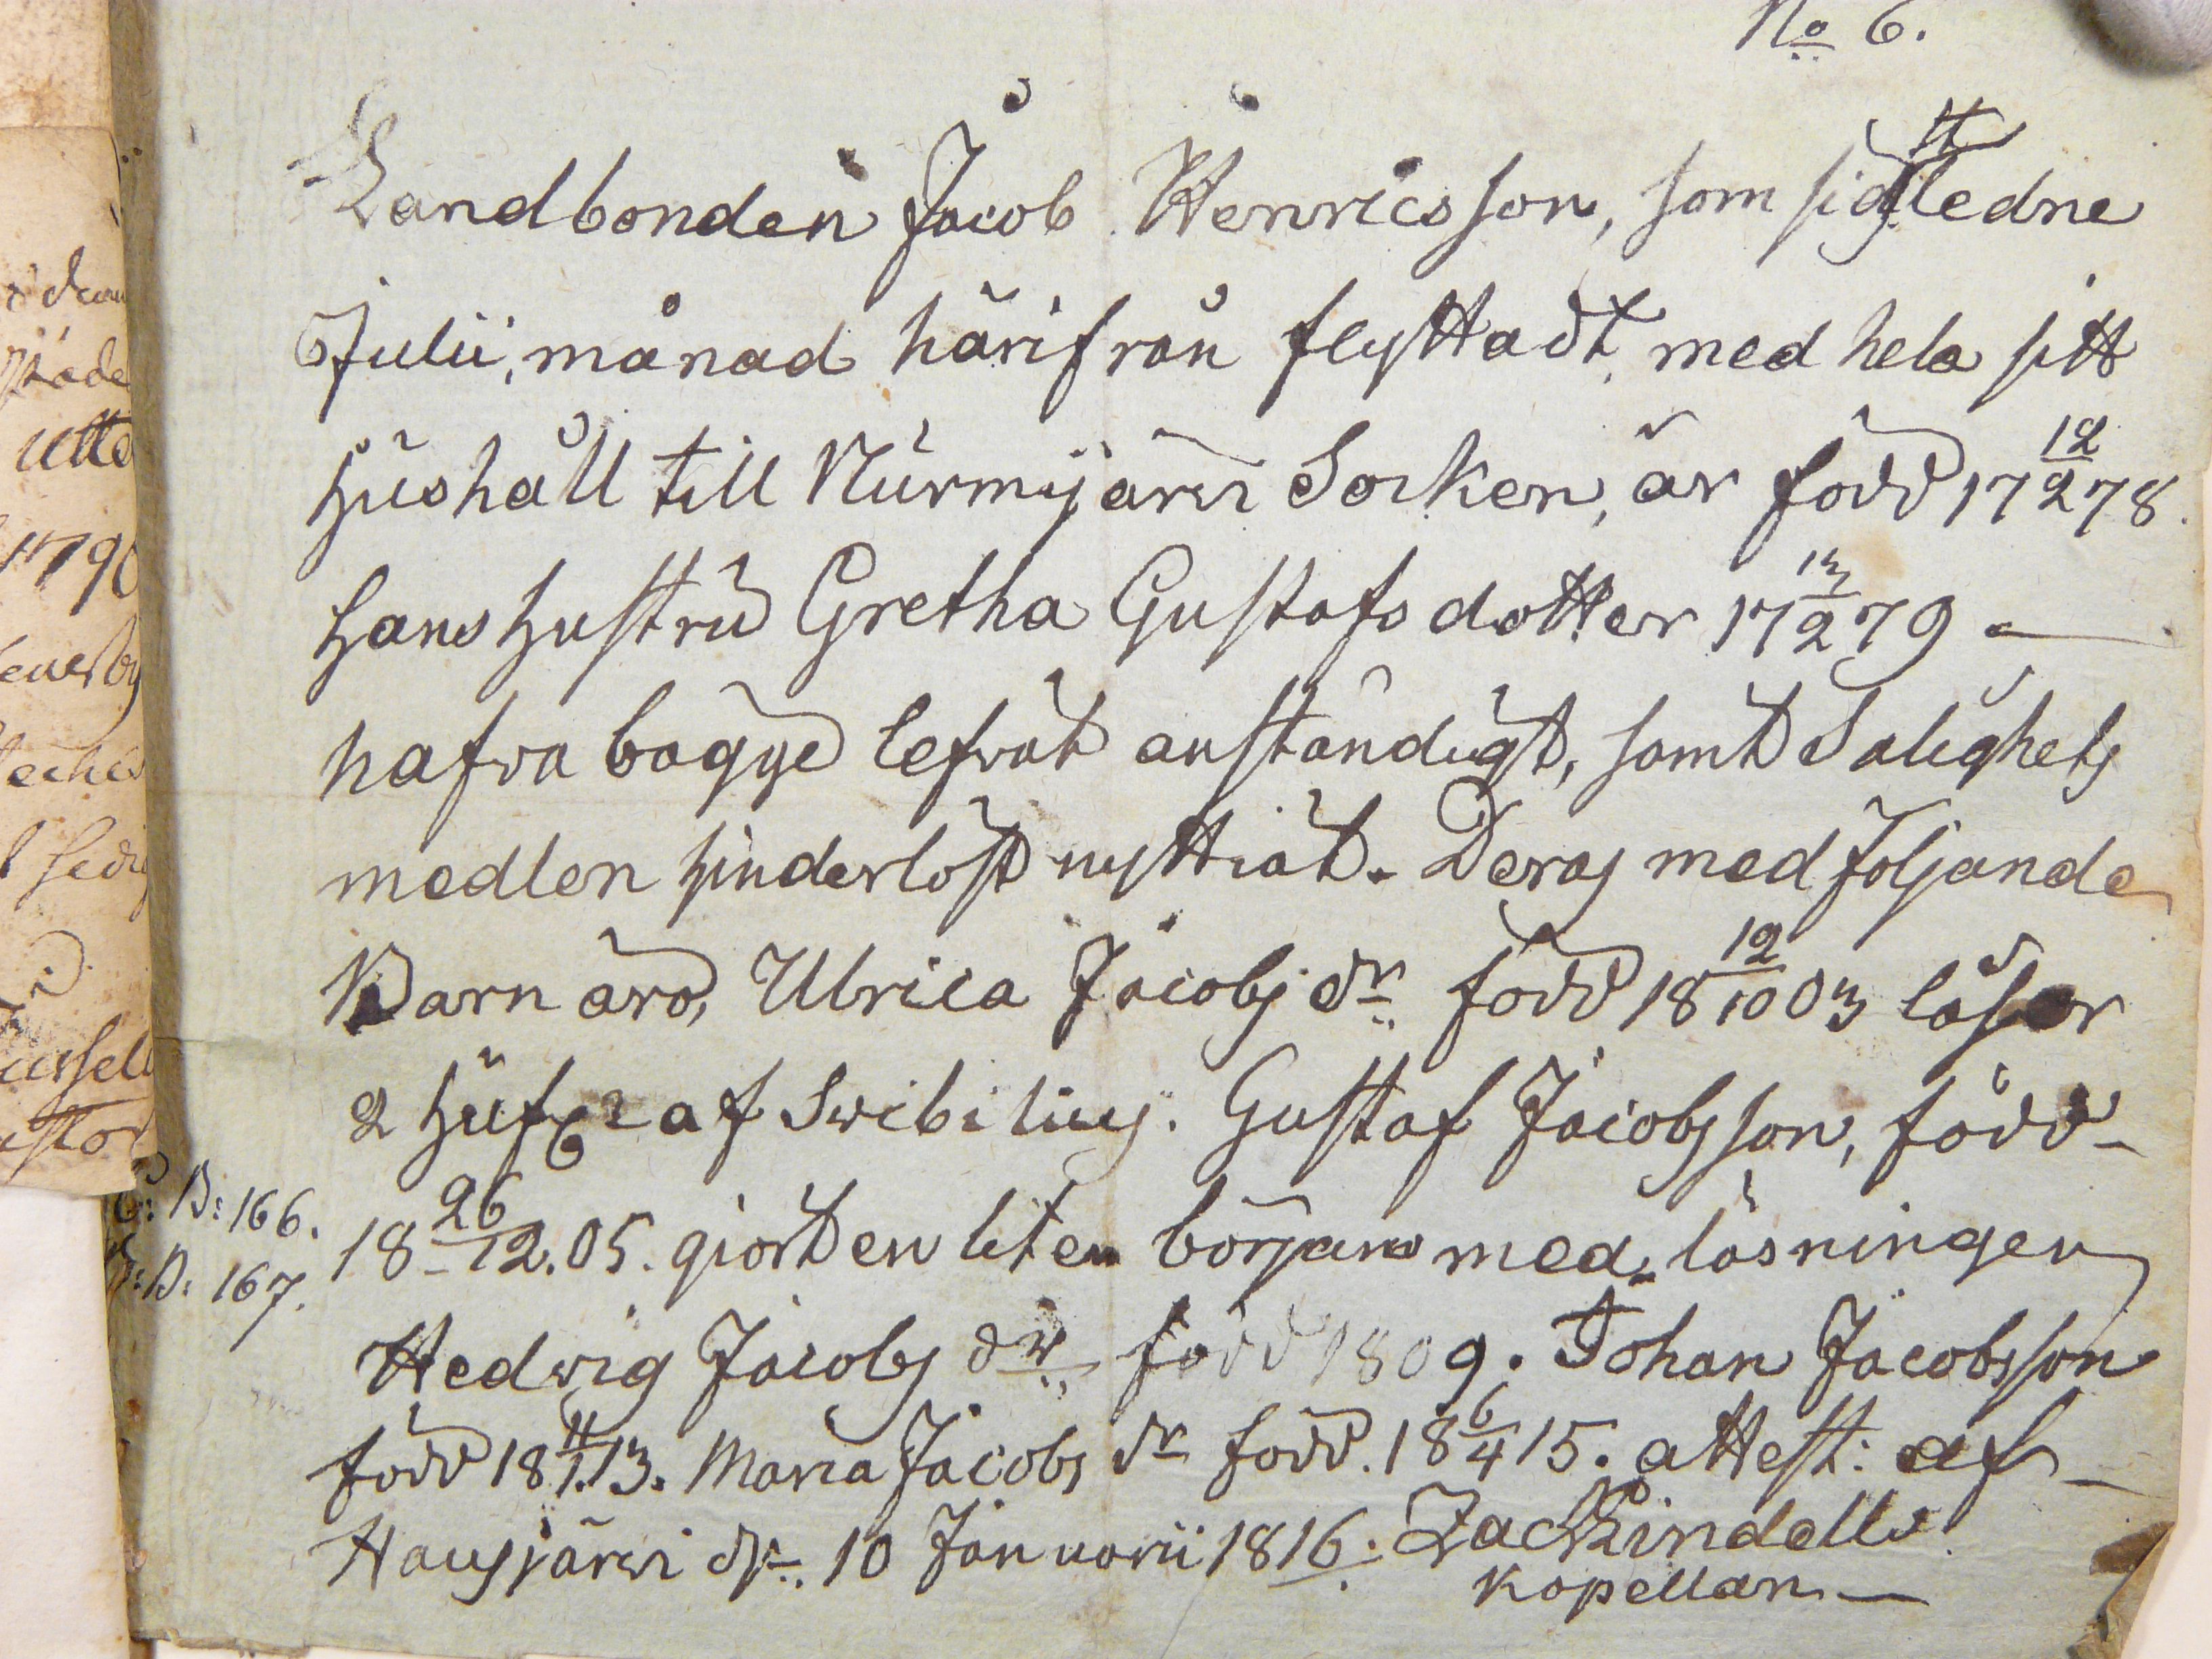 No 6.
Landbonden Jacob Henricsson, som sistledne
Julii, månad härifrån flyttadt, med hela sitt
hushåll till Nurmijärvi Socken, är född 17 12/2 78.
Hans hustru Gretha Gustafs dotter 17 13/2 79 —
hafva bägge lefvat anständigt, samt Salighets
medlen hinderlöst nyttiat. Deras medföljande
Barn äro, Ulrica Jacobs dr född 18 12/10 03 läser
2 Hufv: af Svibilius. Gustaf Jacobsson, född
C: B: 166. 18 26/12. 05. giort en liten början med läsningen
B: 167.
Hedvig Jacobs dr född 1809. Johan Jacobsson
född 18 11/1. 13. Maria Jacobs dr född. 18 6/4 15. attest: af
Hausjärvi d. 10 Januarii 1816. Zach Lindell
Kapellan —
1790